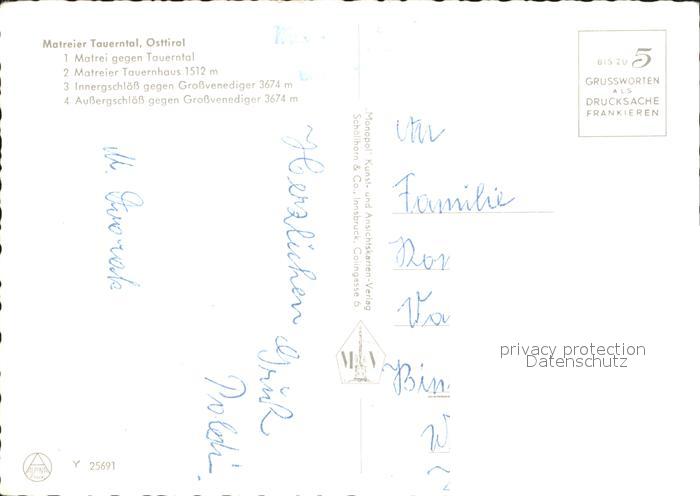 Matreier Tauerntal, Osttirol
1 Matrei gegen Tauerntal
2 Matreier Tauernhaus 1512 m
3 Innergschlöß gegen Großvenediger 3674 m
4 Außergschlöß gegen Großvenediger 3674 m
BIS ZU 5
GRUSSWORTEN
ALS
DRUCKSACHE
FRANKIEREN
"Monopol" Kunst- und Ansichtskarten-Verlag
Schöllhorn & Co., Innsbruck, Colingasse 6
Herzlichen Gruß
Poldi.
M. Dworak
An
Familie
Va
Bin
W
MV
privacy protection
Datenschutz
ALPINA
Y 25691